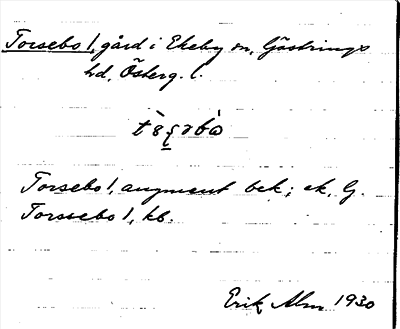 Torsebo 1, gård i Ekeby sn, Göstrings
hd, Österg. l.
Torsebo 1, augment bek; ek, G.
Torssebo 1, kb.
Erik Alm 1930